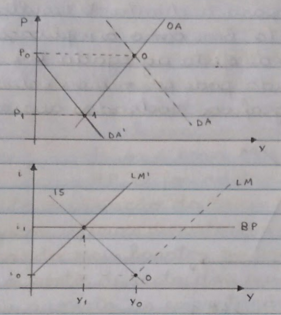 P
OA
P₀
0
P₁
1
DA
DA'
Y
i
LM'
LM
IS
i₁
1
BP
i₀
0
Y₁
Y₀
Y